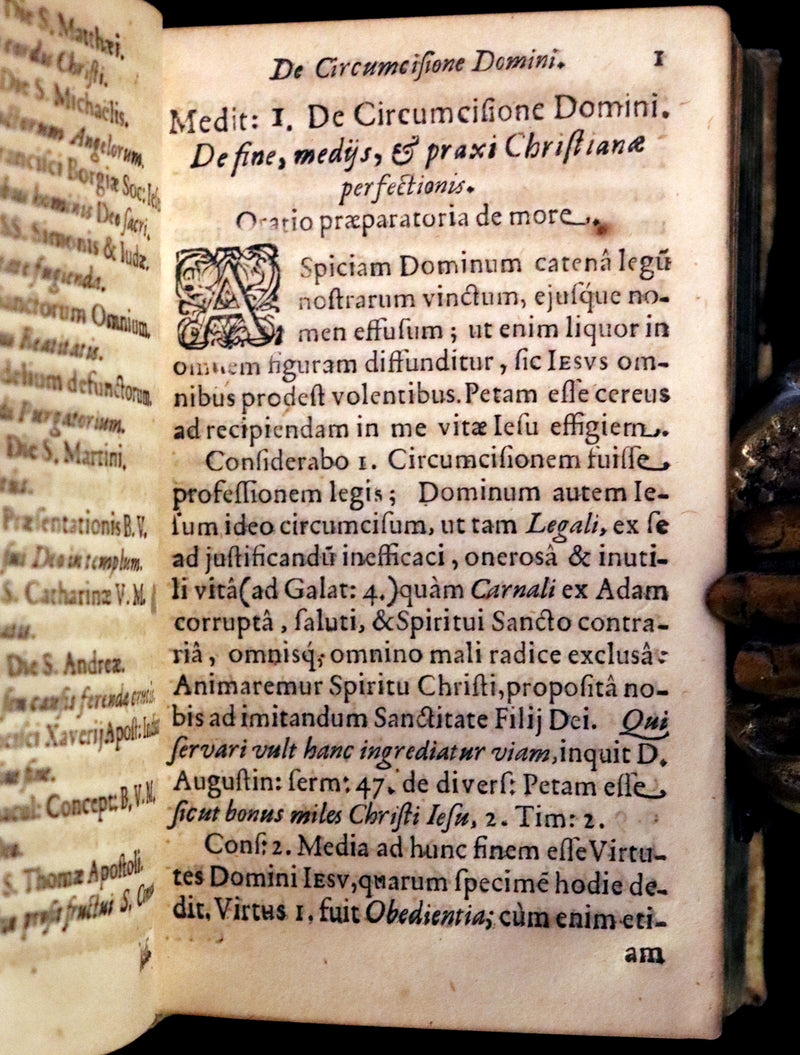 Die S. Matthæi.
Christi.
Die S. Michaelis.
Angelorum.
Borgiæ Soc: Ies
Deo sacri.
SS. Simonis & Iudæ.
fugienda.
Sanctorum Omnium.
Beatitatis.
defunctorum.
Purgatorium.
Die S. Martini.
Præsentationis B. V.
Deo in templum.
S. Catharinæ V. M.
Die S. Andreæ.
ferenda
Xaverij Apost: Indi
Concept: B. V. M.
S. Thomæ Apostoli.
De Circumcisione Domini. 1
Medit: 1. De Circumcisione Domini.
De fine, medijs, & praxi Christianæ
perfectionis.
Oratio præparatoria de more.
ASpiciam Dominum catenâ legũ
noſtrarum vinctum, ejuſq́ue no-
men effuſum ; ut enim liquor in
omnem figuram diffunditur, ſic IESVS om-
nibus prodeſt volentibus. Petam eſſe cereus
ad recipiendam in me vitæ Ieſu effigiem.
Conſiderabo 1. Circumciſionem fuiſſe
profeſſionem legis ; Dominum autem Ie-
ſum ideo circumciſum, ut tam Legali, ex ſe
ad juſtificandũ inefficaci, onerosâ & inuti-
li vitâ (ad Galat: 4.) quàm Carnali ex Adam
corruptâ, ſaluti, & Spiritui Sancto contra-
riâ, omnisq́; omnino mali radice exclusâ:
Animaremur Spiritu Chriſti, propoſitâ no-
bis ad imitandum Sanctitate Filij Dei. Qui
ſervari vult hanc ingrediatur viam, inquit D.
Auguſtin: ſerm: 47. de diverſ: Petam eſſe
ſicut bonus miles Chriſti Ieſu, 2. Tim: 2.
Conſ: 2. Media ad hunc finem eſſe Virtu-
tes Domini IESV, quarum ſpecimẽ hodie de-
dit. Virtus 1. fuit Obedientia; cùm enim eti-
am